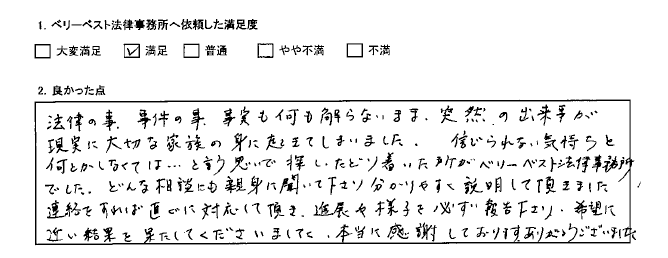 1. ベリーベスト法律事務所へ依頼した満足度
大変満足 満足 普通 やや不満 不満
2. 良かった点
法律の事、事件の事、事実も何も解らないまま、突然の出来事が
現実に大切な家族の身に起きてしまいました。 信じられない気持ちと
何とかしなくては…と言う思いで探し、たどり着いた所がベリーベスト法律事務所
でした。どんな相談にも親身に聞いて下さり分かりやすく説明して頂きました
連絡をすれば直ぐに対応して頂き、進展や様子を必ず報告下さり、希望に
近い結果を果たしてくださいまして、本当に感謝しております。ありがとうございました